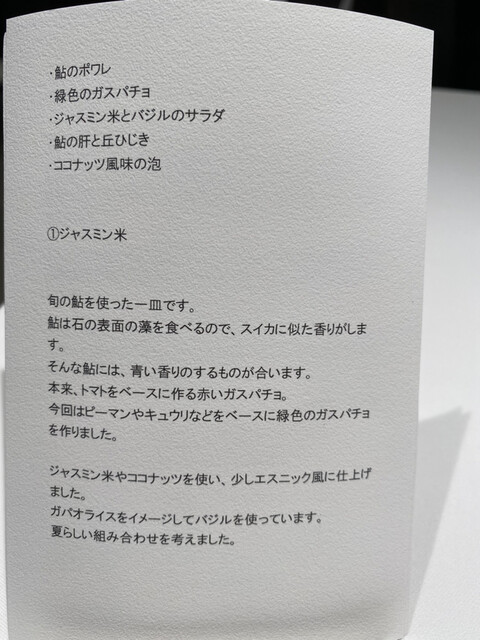 ・鮎のポワレ
・緑色のガスパチョ
・ジャスミン米とバジルのサラダ
・鮎の肝と丘ひじき
・ココナッツ風味の泡
①ジャスミン米
旬の鮎を使った一皿です。
鮎は石の表面の藻を食べるので、スイカに似た香りがしま
す。
そんな鮎には、青い香りのするものが合います。
本来、トマトをベースに作る赤いガスパチョ。
今回はピーマンやキュウリなどをベースに緑色のガスパチョ
を作りました。
ジャスミン米やココナッツを使い、少しエスニック風に仕上げ
ました。
ガパオライスをイメージしてバジルを使っています。
夏らしい組み合わせを考えました。